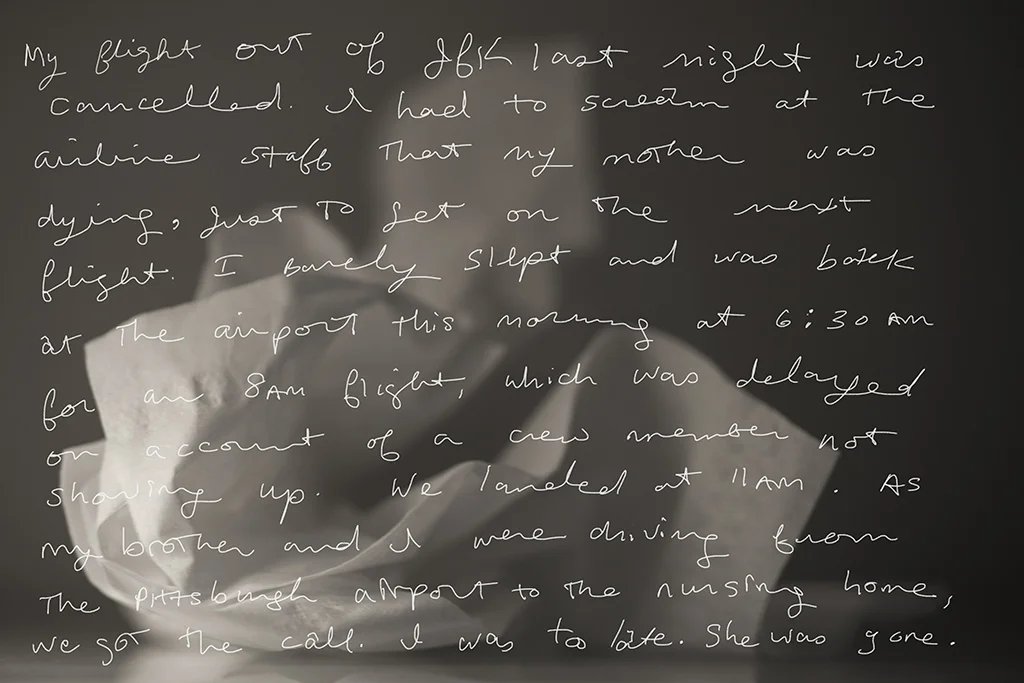 My flight out of JFK last night was
cancelled. I had to scream at the
airline staff that my mother was
dying, just to get on the next
flight. I barely slept and was back
at the airport this morning at 6:30 AM
for an 8AM flight, which was delayed
on account of a crew member not
showing up. We landed at 11AM. As
my brother and I were driving from
The Pittsburgh airport to the nursing home,
we got the call. I was to late. She was gone.